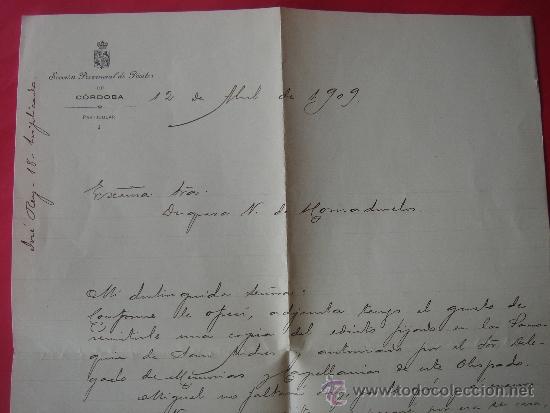 Sección Provincial de Pósitos
DE
CÓRDOBA
PARTICULAR
12 de Abril de 1909.
José Rey - 18 - duplicado
Excma. Sra.
Duquesa V. de Hornachuelos.
Mi distinguida Señora:
Conforme le ofrecí, adjunta tengo el gusto de
remitirle una copia del edicto fijado en la Parro-
quia de San Andrés y autorizado por el Sor. Dele-
gado de Memorias y Capellanías de este Obispado.
Miguel no
todocoleccion.net